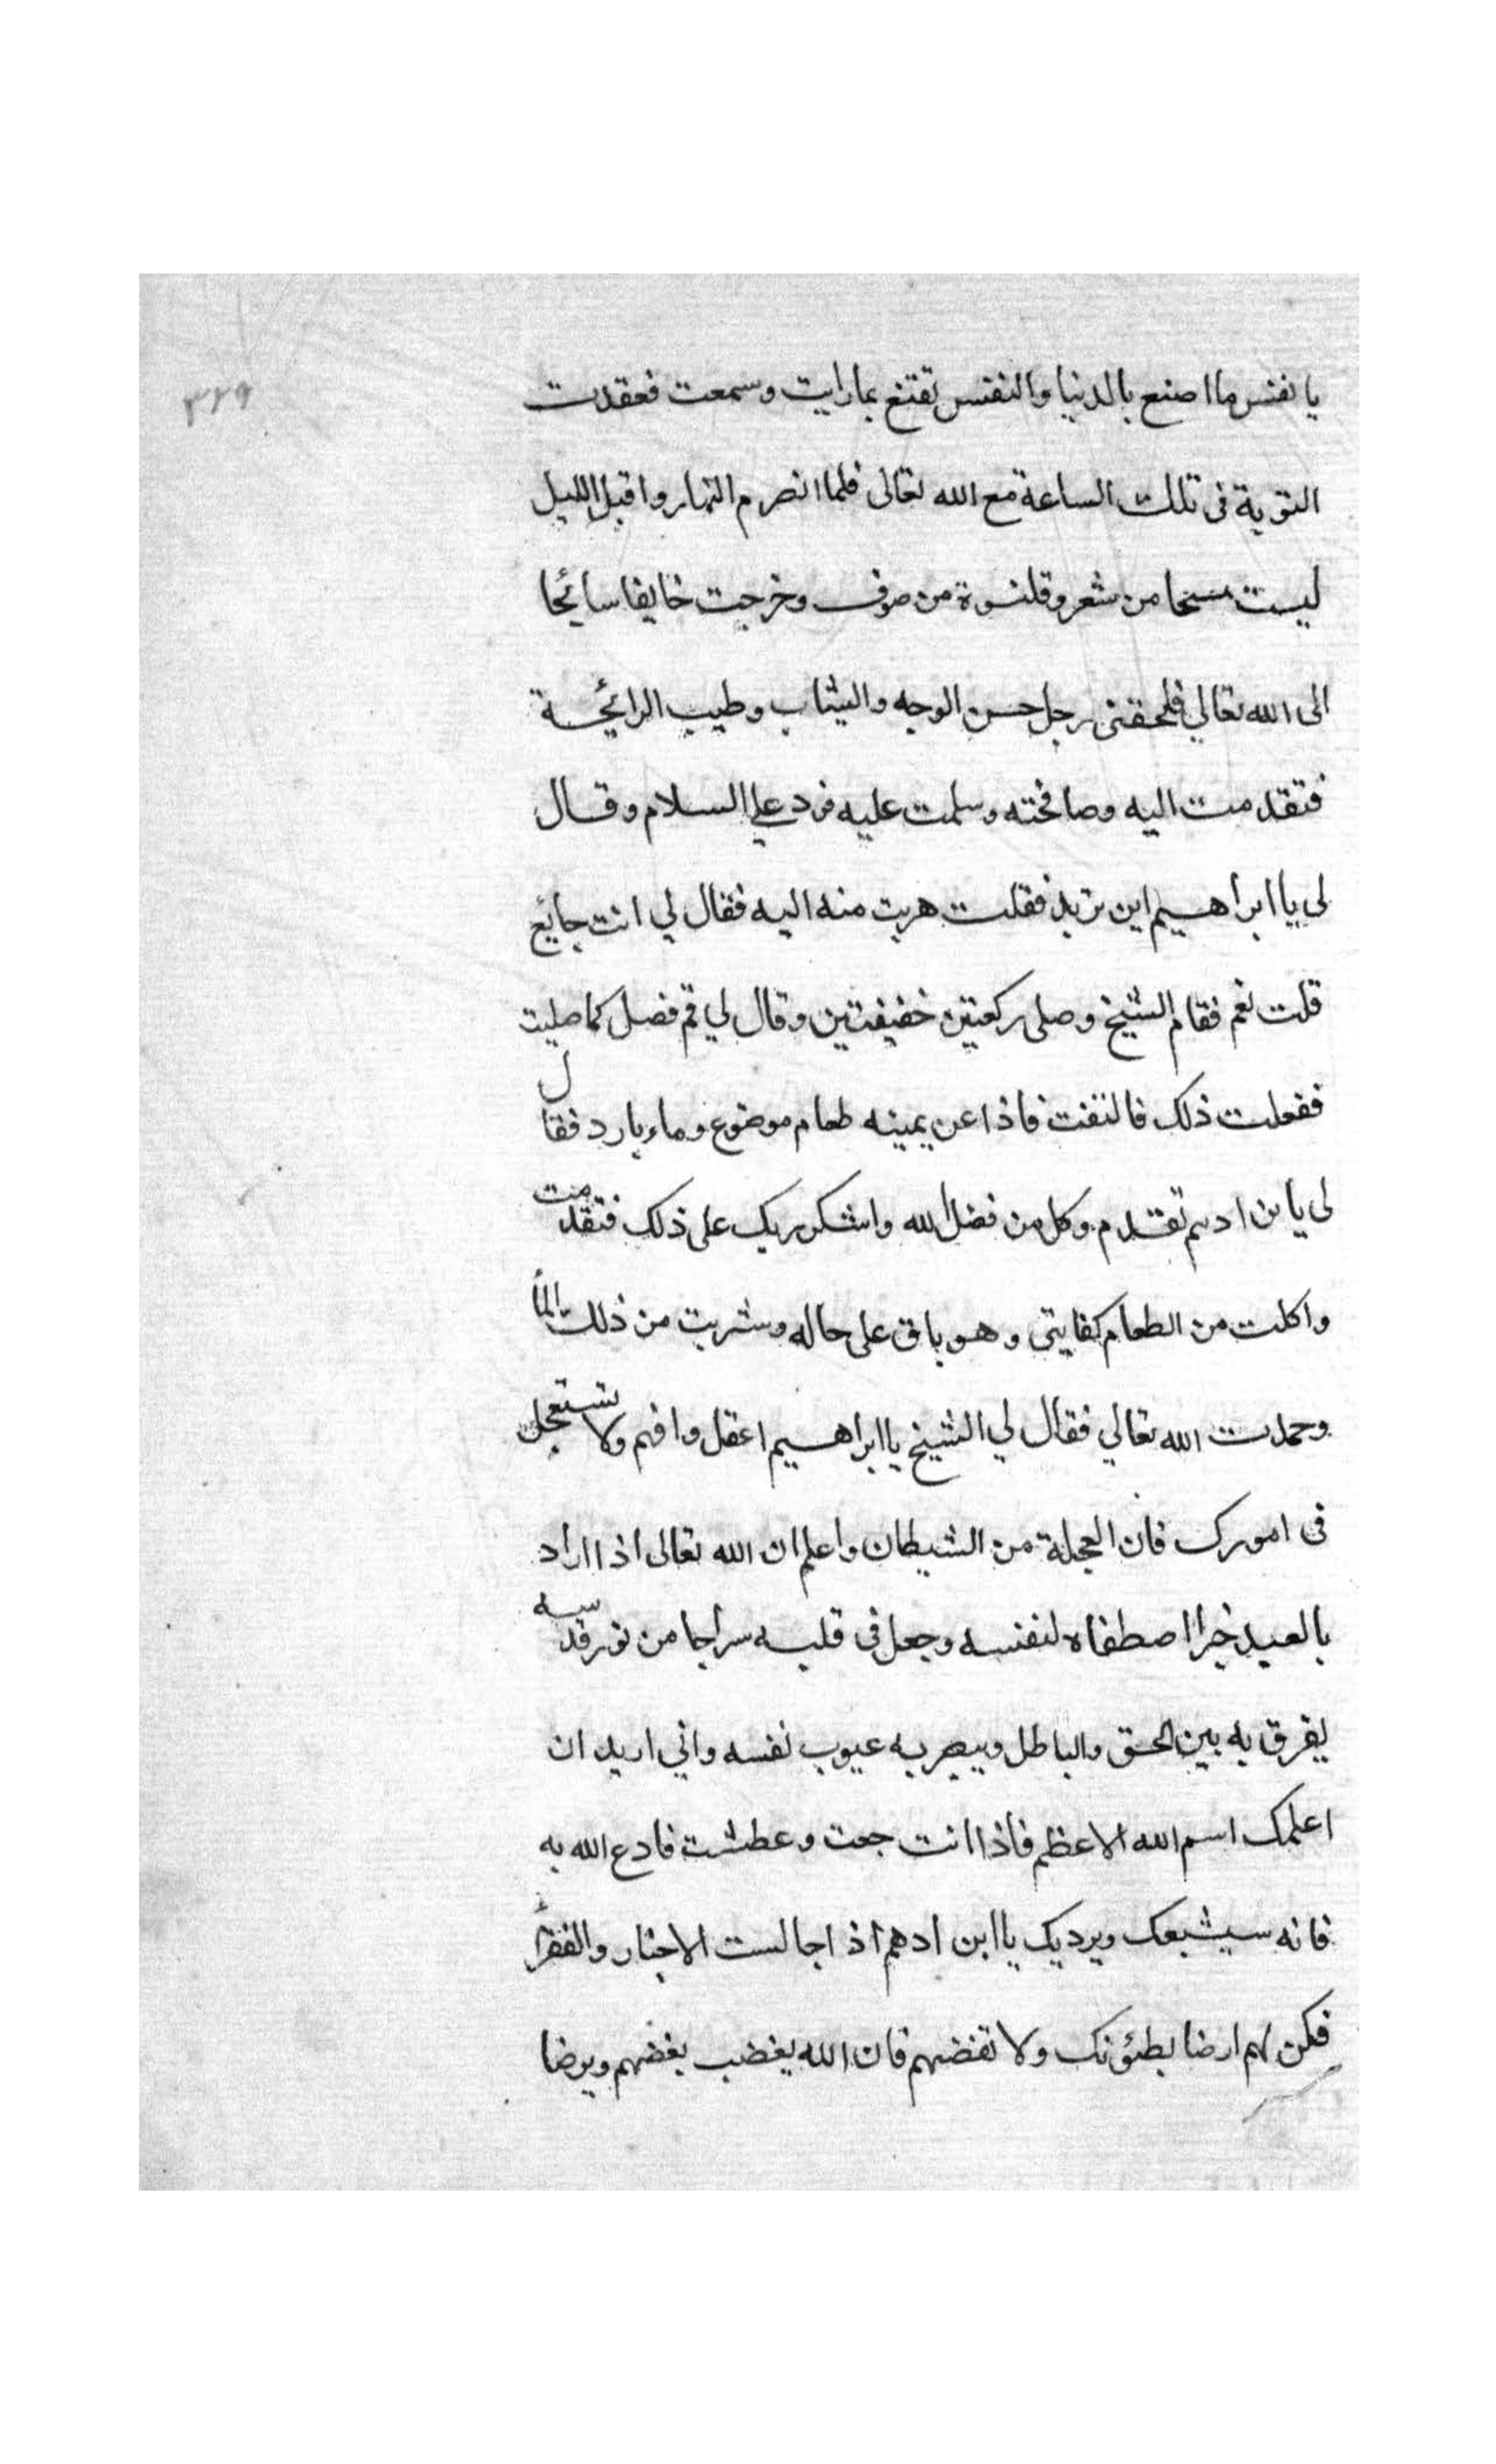 ٣٢٩
يا نفس ما اصنع بالدنيا والنفس تقتنع بما رايت وسمعت فعقدت
التوبة فى تلك الساعة مع الله تعالى فلما انصرم النهار واقبل الليل
لبست مسحا من شعر وقلنسوة من صوف وخرجت خايفا سائحا
الى الله تعالي فلحقنى رجل حسن الوجه والثياب وطيب الرائحة
فتقدمت اليه وصافحته وسلمت عليه فرد علي السلام وقال
لى يا ابراهيم اين تريد فقلت هربت منه اليه فقال لي انت جايع
قلت نعم فقام الشيخ وصلى ركعتين خفيفتين وقال لي قم فصل كما صليت
ففعلت ذلك فالتفت فاذا عن يمينه طعام موضوع وماء بارد فقال
لى يا بن ادهم تقدم وكل من فضل الله واشكر ربك على ذلك فتقدمت
واكلت من الطعام كفايتى وهو باق على حاله وشربت من ذلك المأ
وحمدت الله تعالي فقال لي الشيخ يا ابراهيم اعقل وافهم ولا تستعجل
فى امورك فان العجلة من الشيطان واعلم ان الله تعالى اذا اراد
بالعبد خيرا اصطفاه لنفسه وجعل فى قلبه سراجا من نور قدسه
يفرق به بين الحق والباطل ويبصر به عيوب نفسه واني اريد ان
اعلمك اسم الله الاعظم فاذا انت جعت وعطشت فادع الله به
فانه سيشبعك ويرديك يا ابن ادهم اذا جالست الاخيار والفقرأ
فكن لهم ارضا يطئونك ولا تغضبهم فان الله يغضب بغضبهم ويرضا